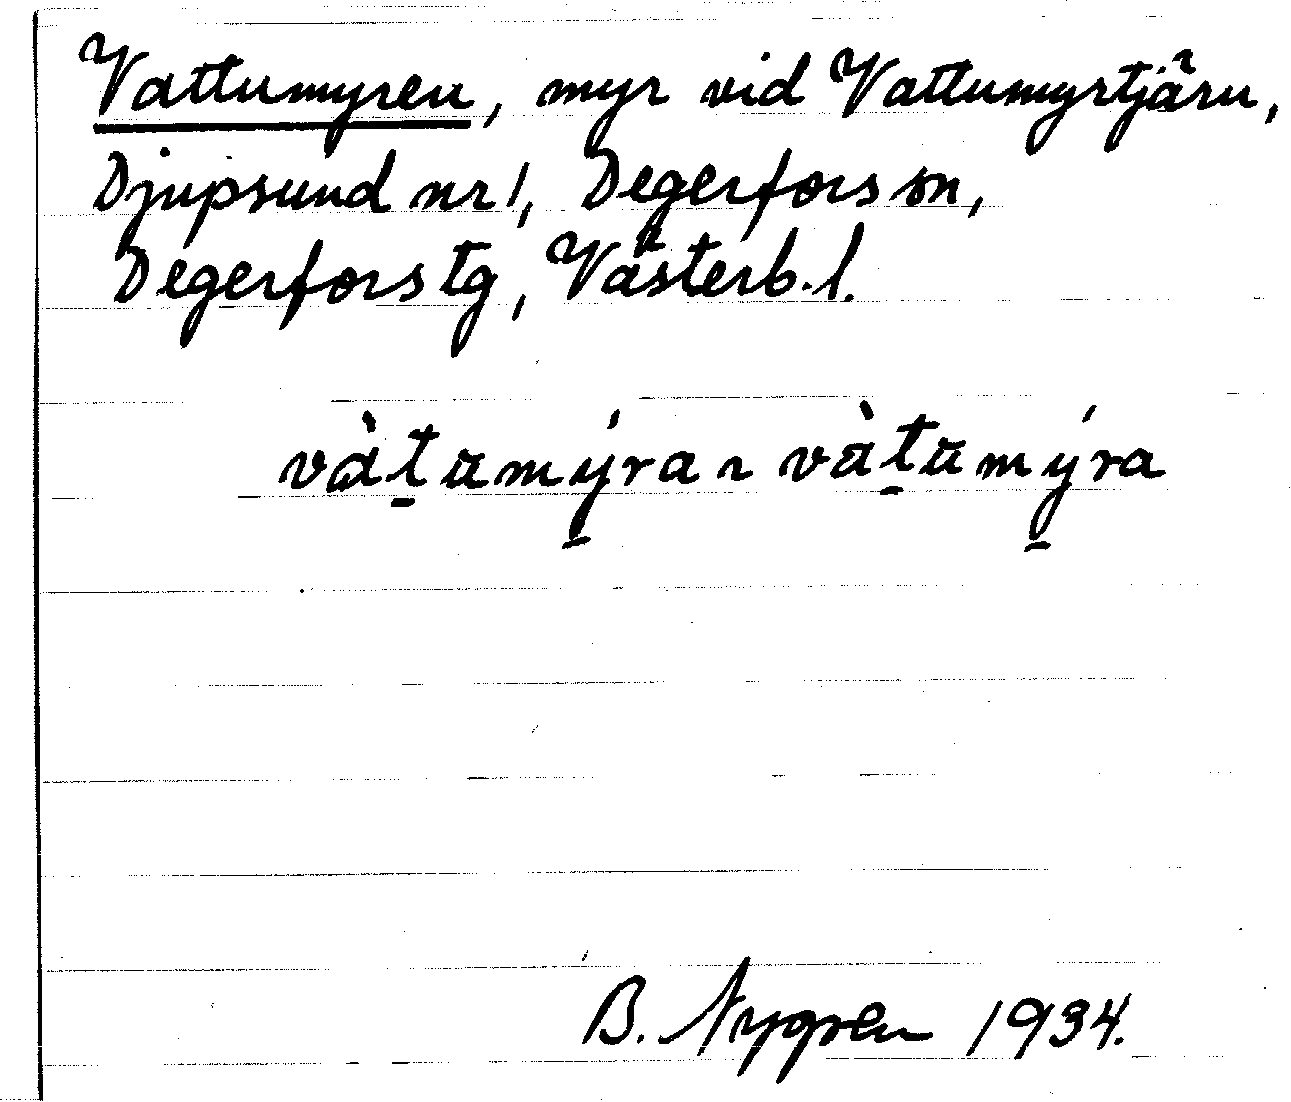 Vattumyren, myr vid Vattumyrtjärn,
Djupsund nr 1, Degerfors sn,
Degerfors tg, Västerb. l.
và̀t̠umý̠ra ~ vàt̠umý̠ra
B. Nygren 1934.